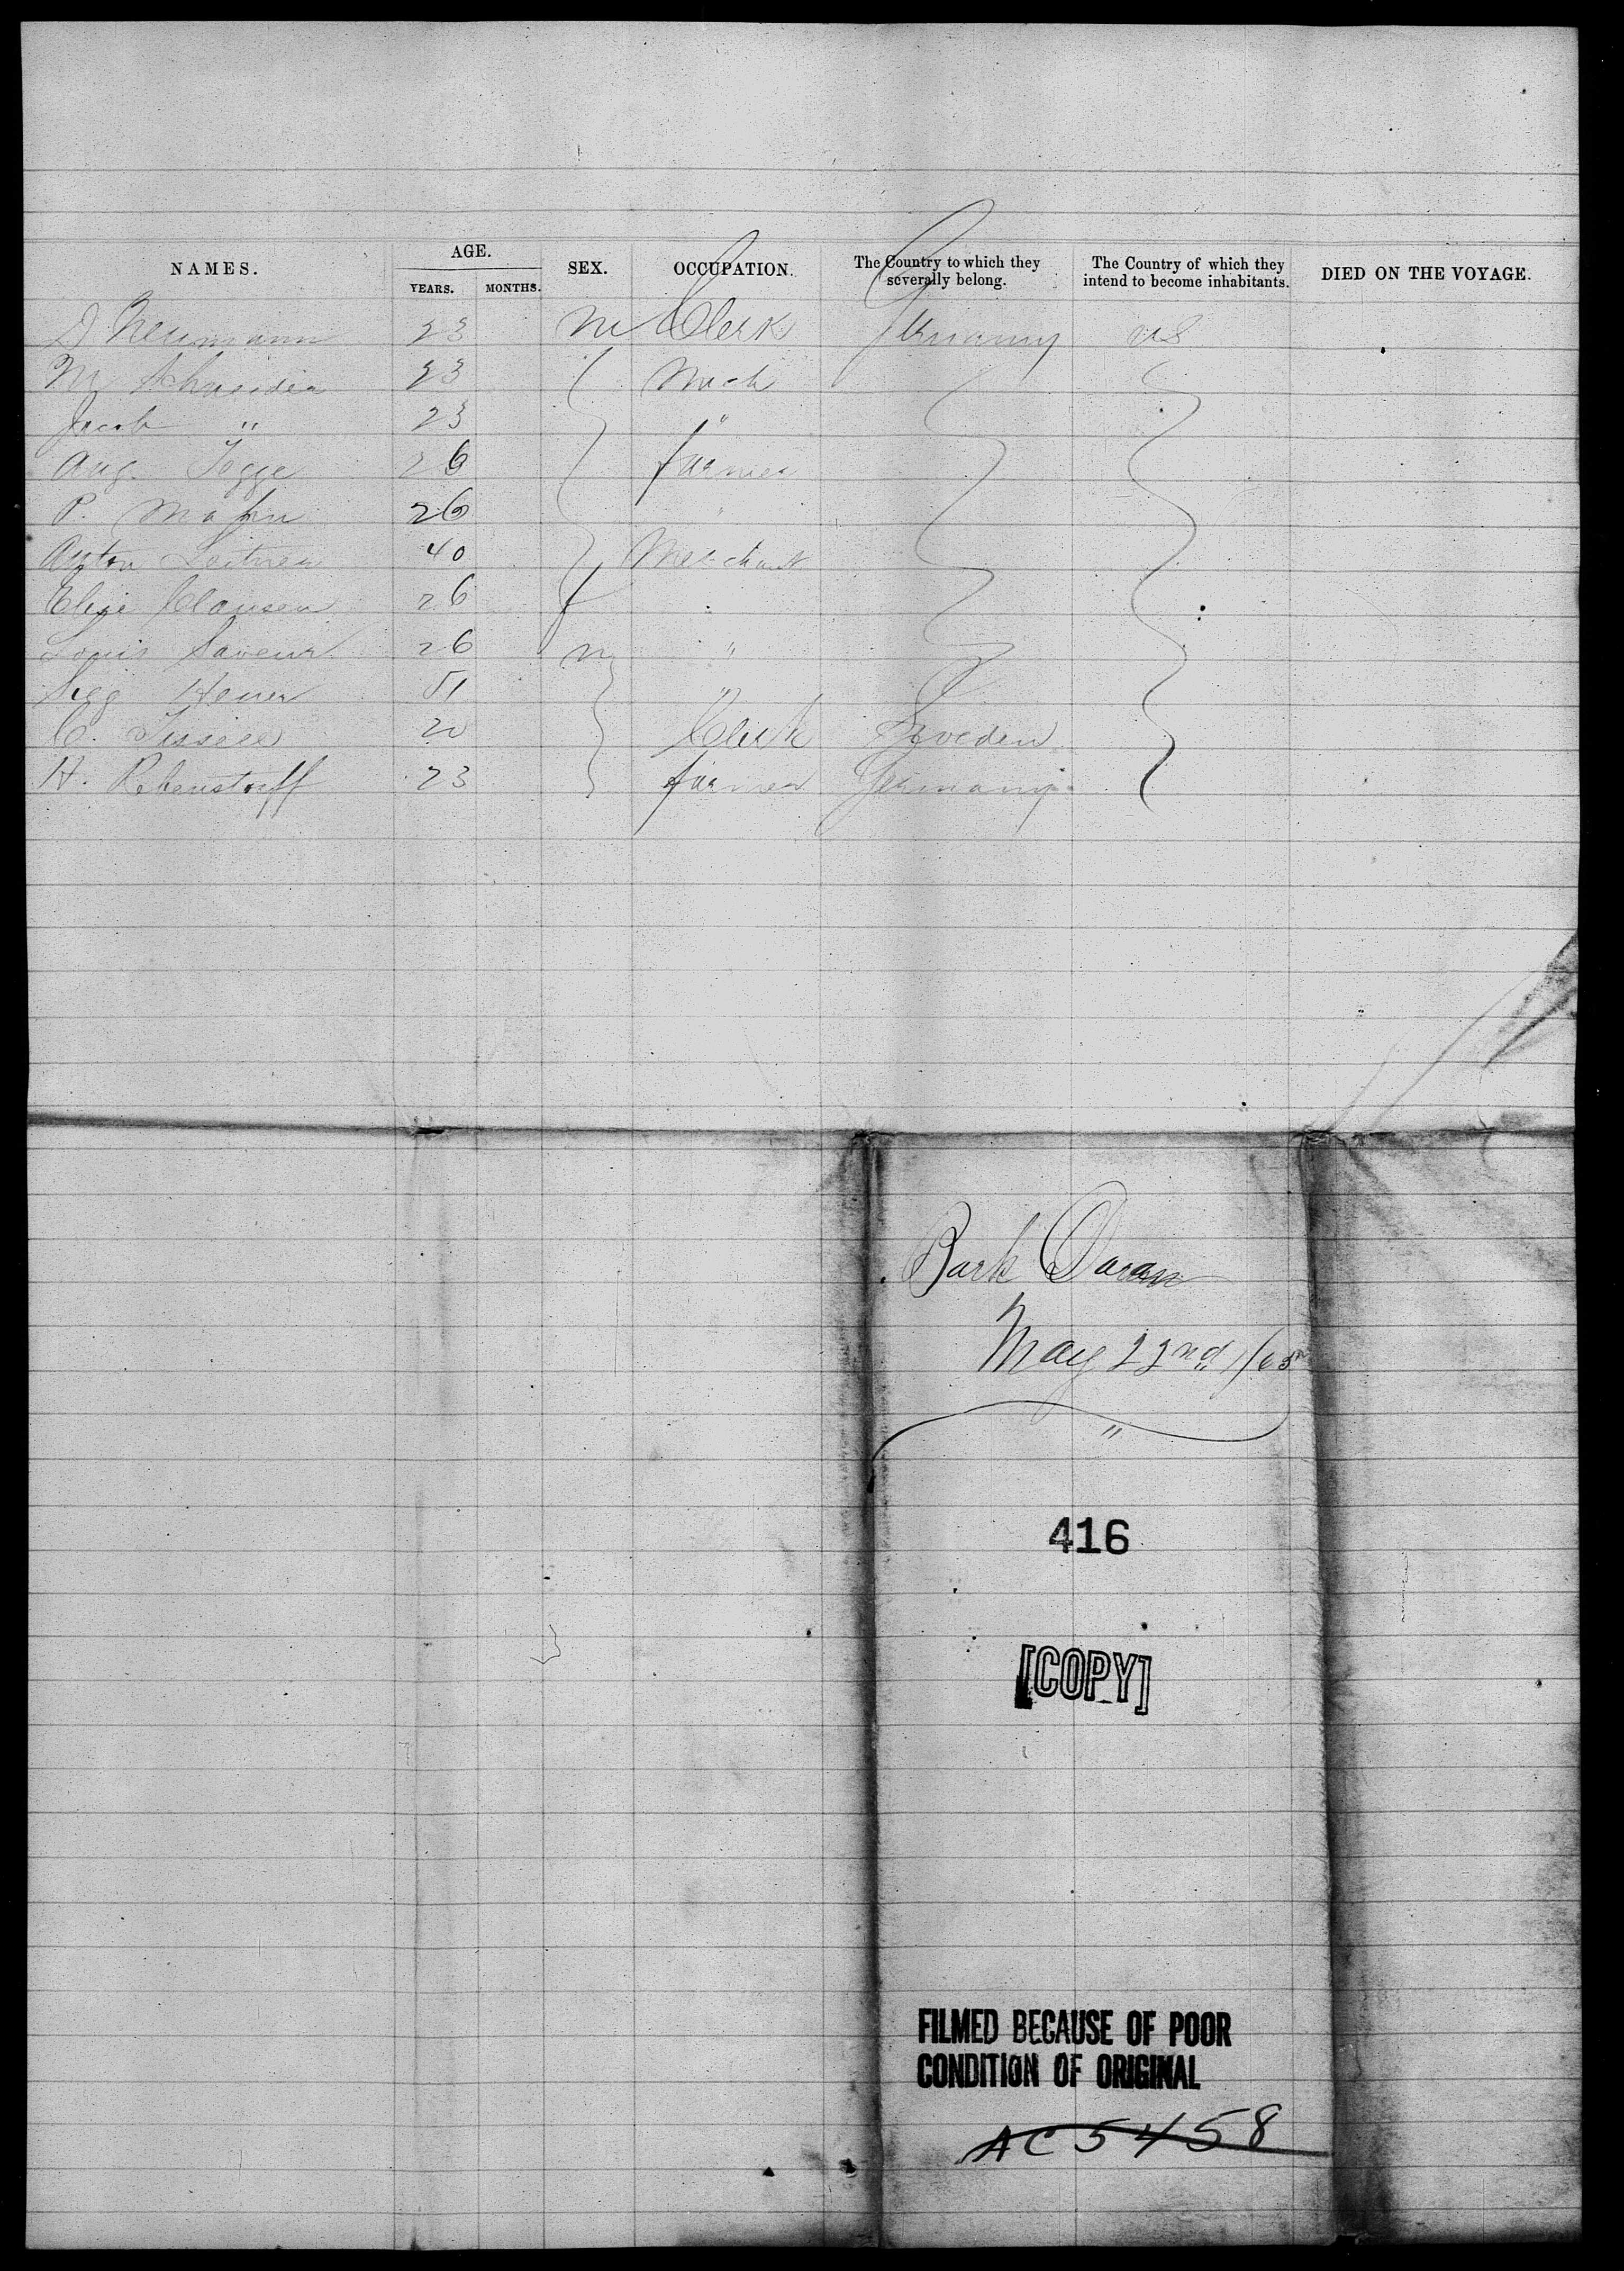 NAMES. AGE. YEARS. MONTHS. SEX. OCCUPATION. The Country to which they severally belong. The Country of which they intend to become inhabitants. DIED ON THE VOYAGE.
D Neumann 23 m Clerk Germany US
M Schneider 23 Mech
Jacob " 23 "
Aug. Tegge 26 farmer
P. Mahn 26 "
Anton Leitner 40 Merchant
Elise Clausen 26 f
Louis Saveur 26 m "
Heuer 51 "
C. 20 Clerk Sweden
H. Rebenstorff 23 farmer Germany
Bark
May 22nd /65
"
416
[COPY]
FILMED BECAUSE OF POOR
CONDITION OF ORIGINAL
AC 5458